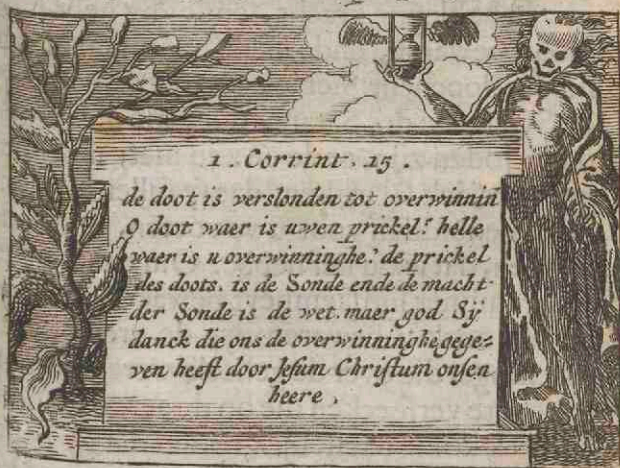 1. Corrint. 15.
de doot is verslonden tot overwinnin
O doot waer is uwen prickel? helle
waer is u overwinninghe? de prickel
des doots. is de Sonde ende de macht
der Sonde is de wet. maer god Sÿ
danck die ons de overwinninghe gege=
ven heeft door Jesum Christum onsen
heere,